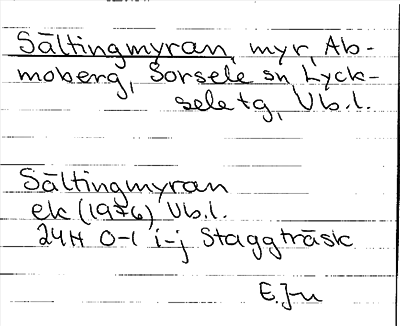 Sältingmyran, myr, Ab-
moberg, Sorsele sn Lyck-
sele tg, Vb.l.
Sältingmyran
ek (1976) Vb.l.
24H 0-1 i-j Staggträsk
E.J-u